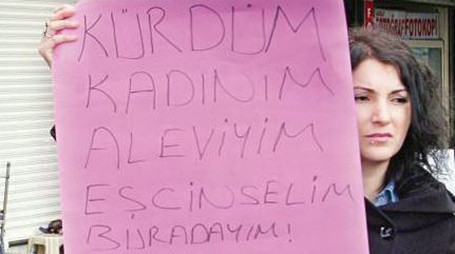 KÜRDÜM
KADINIM
ALEVİYİM
EŞCİNSELİM
BURADAYIM!
FOTOĞRAF FOTOKOPİ